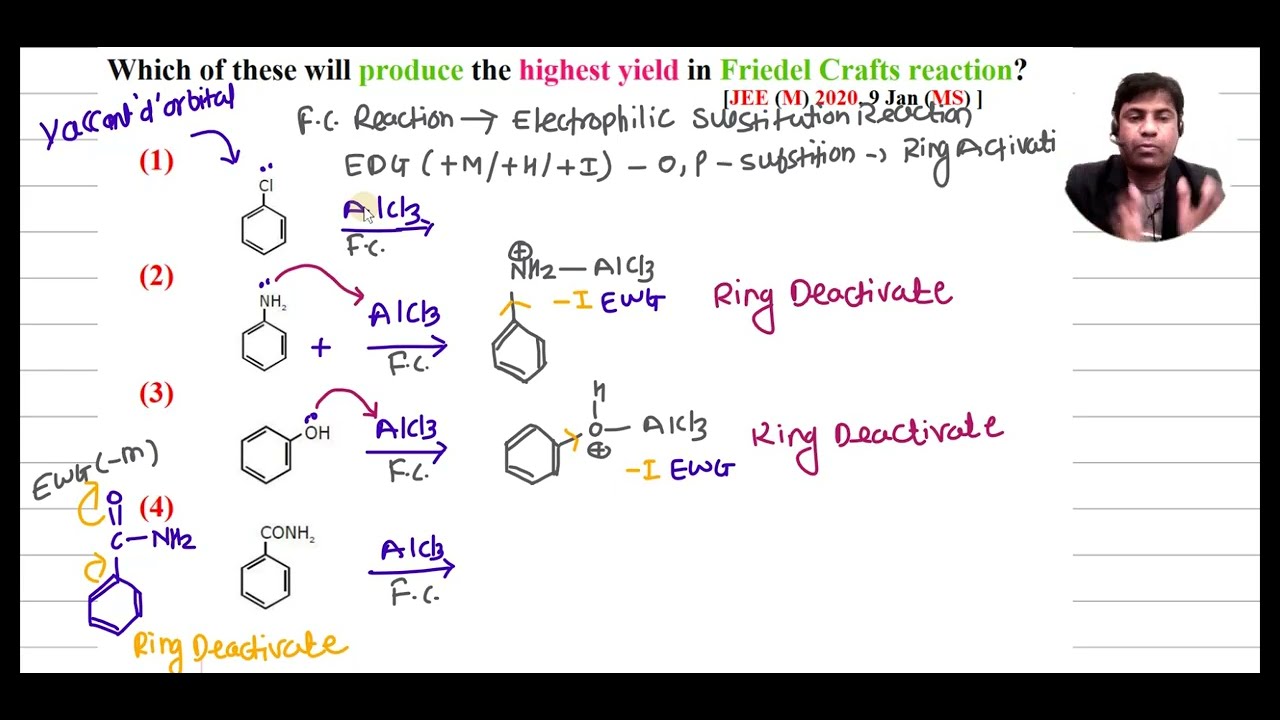 Which of these will produce the highest yield in Friedel Crafts reaction?
[JEE (M) 2020, 9 Jan (MS) ]
Vaccant 'd' orbital
F.C. Reaction → Electrophilic Substitution Reaction
EDG (+M/+H/+I) – O, P – Substition → Ring Activati
(1)
Cl
AlCl3
F.C.
(2)
NH2
+
AlCl3
F.C.
⊕
NH2 — AlCl3
-I EWG
Ring Deactivate
(3)
OH
AlCl3
F.C.
H
O — AlCl3
⊕
-I EWG
Ring Deactivate
EWG (-M)
(4)
O
C – NH2
CONH2
AlCl3
F.C.
Ring Deactivate